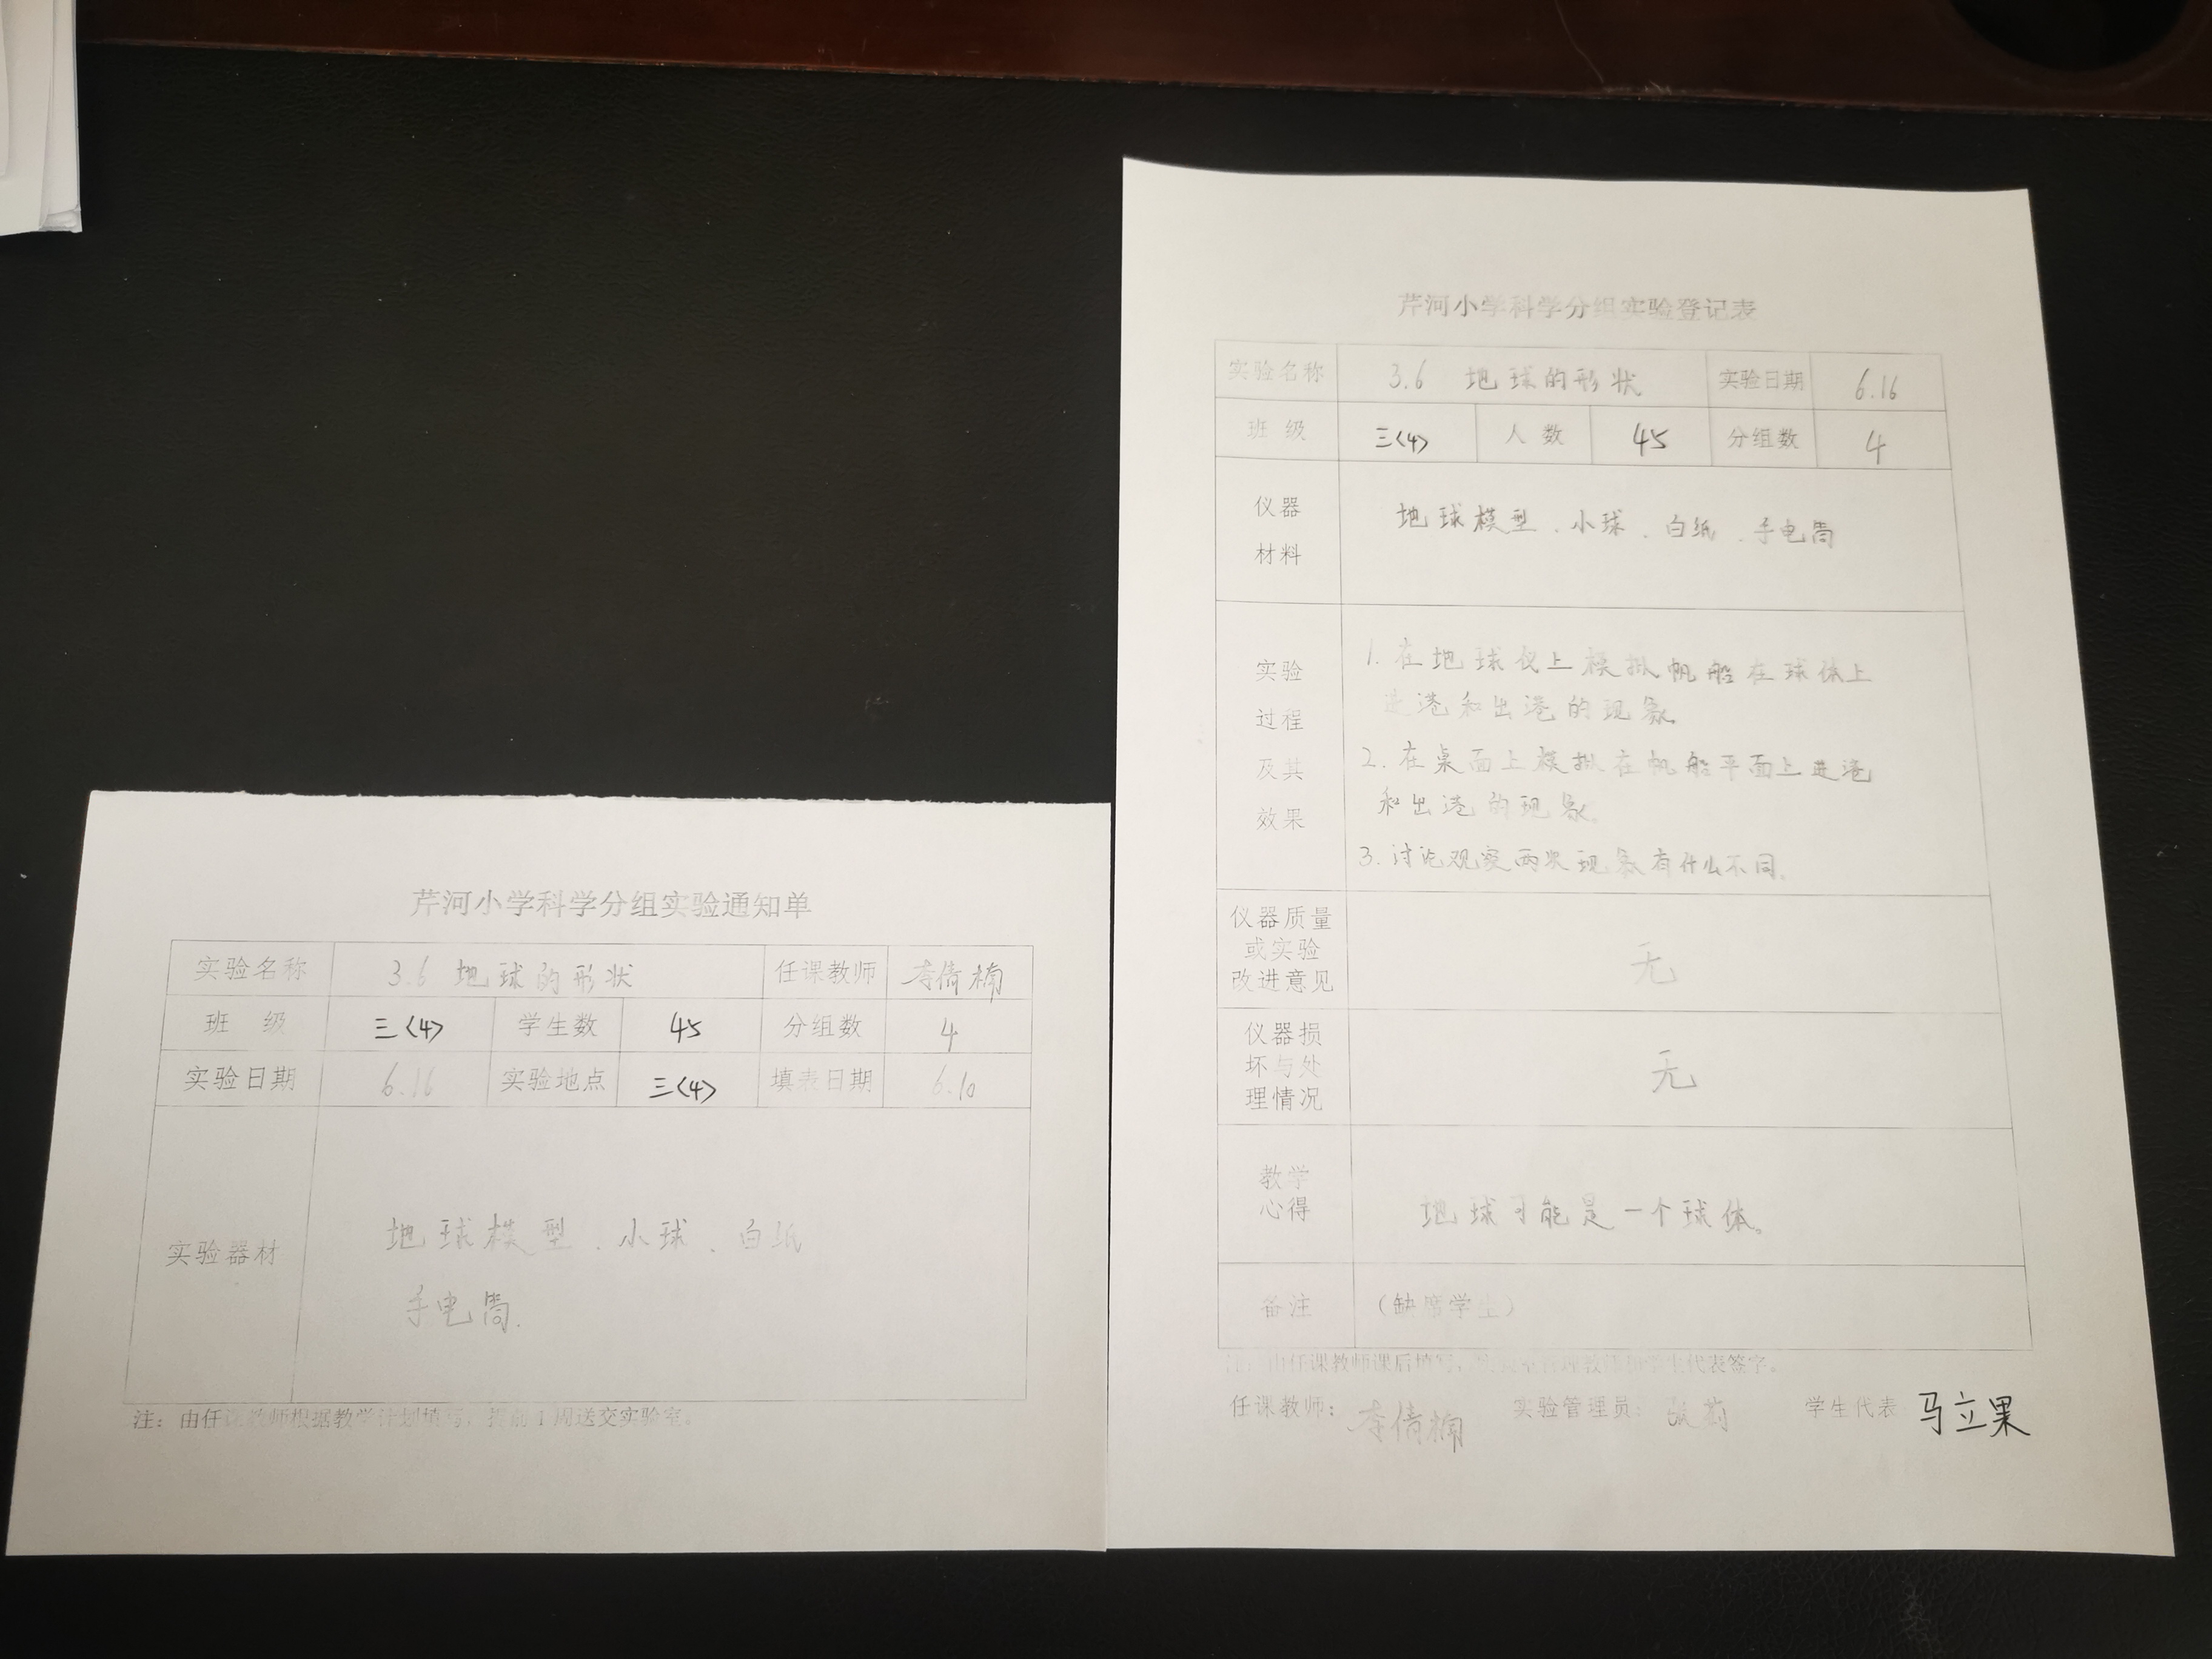 芹河小学科学分组实验通知单
实验名称 3.6 地球的形状 任课教师 李倩楠
班 级 三<4> 学生数 45 分组数 4
实验日期 6.16 实验地点 三<4> 填表日期 6.10
实验器材
地球模型、小球、白纸
手电筒.
注：由任课教师根据教学计划填写，提前1周送交实验室。
芹河小学科学分组实验登记表
实验名称 3.6 地球的形状 实验日期 6.16
班 级 三<4> 人 数 45 分组数 4
仪器
材料
地球模型、小球、白纸、手电筒
实验
过程
及其
效果
1. 在地球仪上模拟帆船在球体上
进港和出港的现象
2. 在桌面上模拟在帆船平面上进港
和出港的现象。
3. 讨论观察两次现象有什么不同。
仪器质量
或实验
改进意见
无
仪器损
坏与处
理情况
无
教学
心得
地球可能是一个球体。
备注 （缺席学生）
注：由任课教师课后填写，代表签字。
任课教师： 李倩楠 实验管理员： 学生代表 马立果